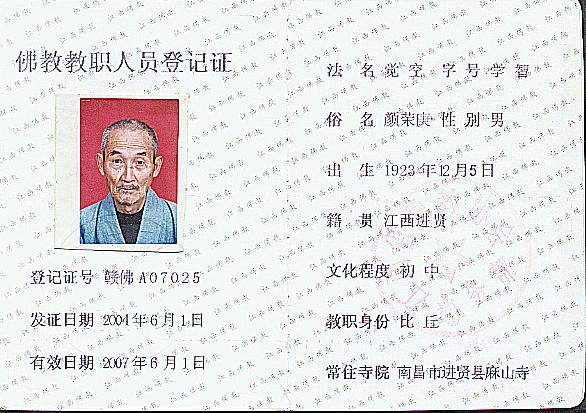 佛教教职人员登记证
登记证号 赣佛A07025
发证日期 2004年6月1日
有效日期 2007年6月1日
法 名 觉空 字号 学智
俗 名 颜荣庚 性别 男
出 生 1923年12月5日
籍 贯 江西进贤
文化程度 初 中
教职身份 比 丘
常住寺院 南昌市进贤县麻山寺